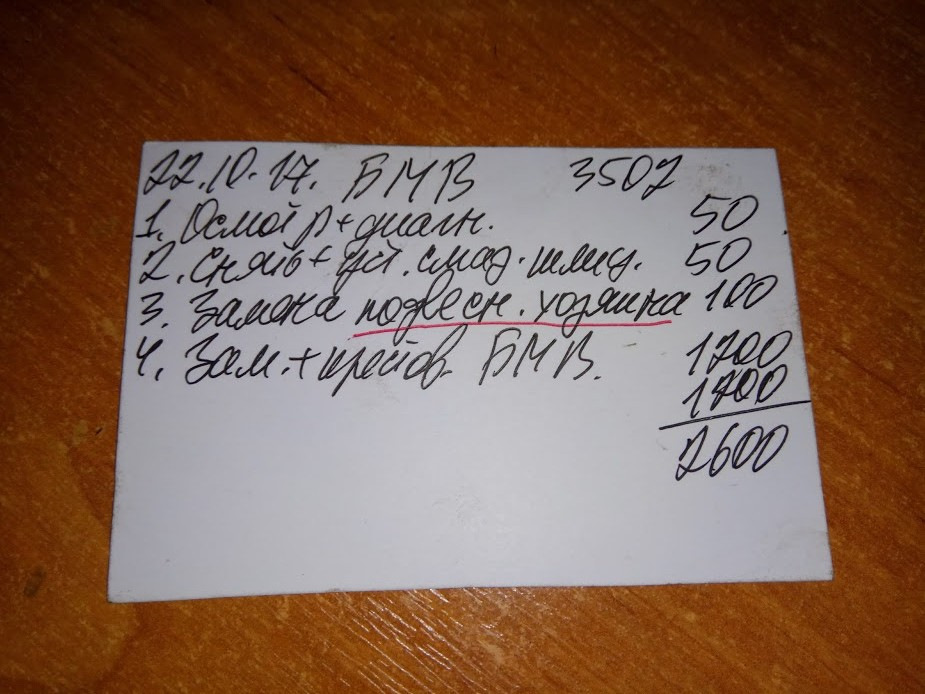 22.10.17. БМВ 3502
1. Осмотр + диагн. 50
2. Сняť + уст. смаз. шлиц. 50
3. Замена подвесн. хозяина 100
4. Зам. + БМВ. 1200
1400
2600